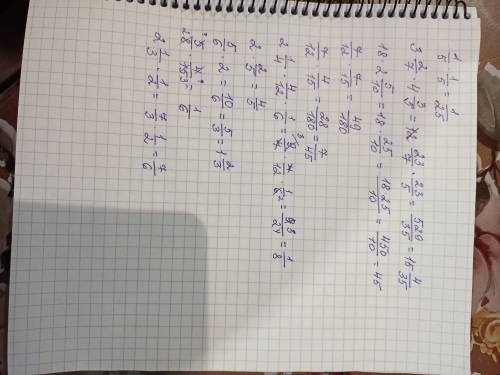 1/5 · 1/5 = 1/25
3 2/7 · 4 3/5 = 23/7 · 23/5 = 529/35 = 15 4/35
18 · 2 5/10 = 18 · 25/10 = 18·25/10 = 450/10 = 45
7/12 · 7/15 = 49/180
7/12 · 4/15 = 28/180 = 7/45
2 1/4 · 4/12 · 1/6 = 9/4 · 4/12 · 1/6 = 3/24 = 1/8
2 · 2/5 = 4/5
5/6 · 2 = 10/6 = 5/3 = 1 2/3
= 1/6
2 1/3 · 1/2 = 7/3 · 1/2 = 7/6